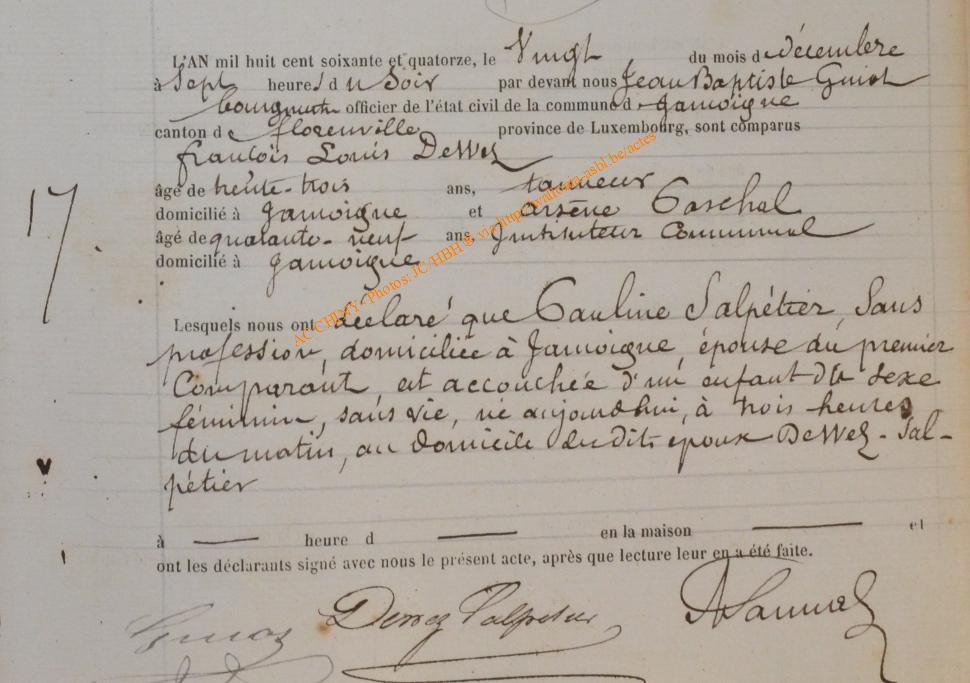 L'AN mil huit cent soixante et quatorze, le Vingt du mois de décembre
à Sept heures du Soir par devant nous Jean Baptiste
bourgmestre officier de l'état civil de la commune de Jamoigne
canton de florenville province de Luxembourg, sont comparus
francois Louis DeWez
âgé de trente-trois ans, tanneur
domicilié à Jamoigne et arsène Paschal
âgé de quarante-neuf ans, Instituteur Communal
domicilié à Jamoigne
17.
Lesquels nous ont déclaré que Pauline Salpétier, Sans
profession, domiciliée à Jamoigne, épouse du premier
Comparant, est accouchée d'un enfant du sexe
féminin, sans vie, né aujourdhui, à trois heures
du matin, au domicile des dits époux DeWez-Sal-
pétier
à heure d en la maison et
ont les déclarants signé avec nous le présent acte, après que lecture leur en a été faite.
Dewez Salpetier
AC CHINY - Photos: JC/HBH © via http://wallonia-asbl.be/actes